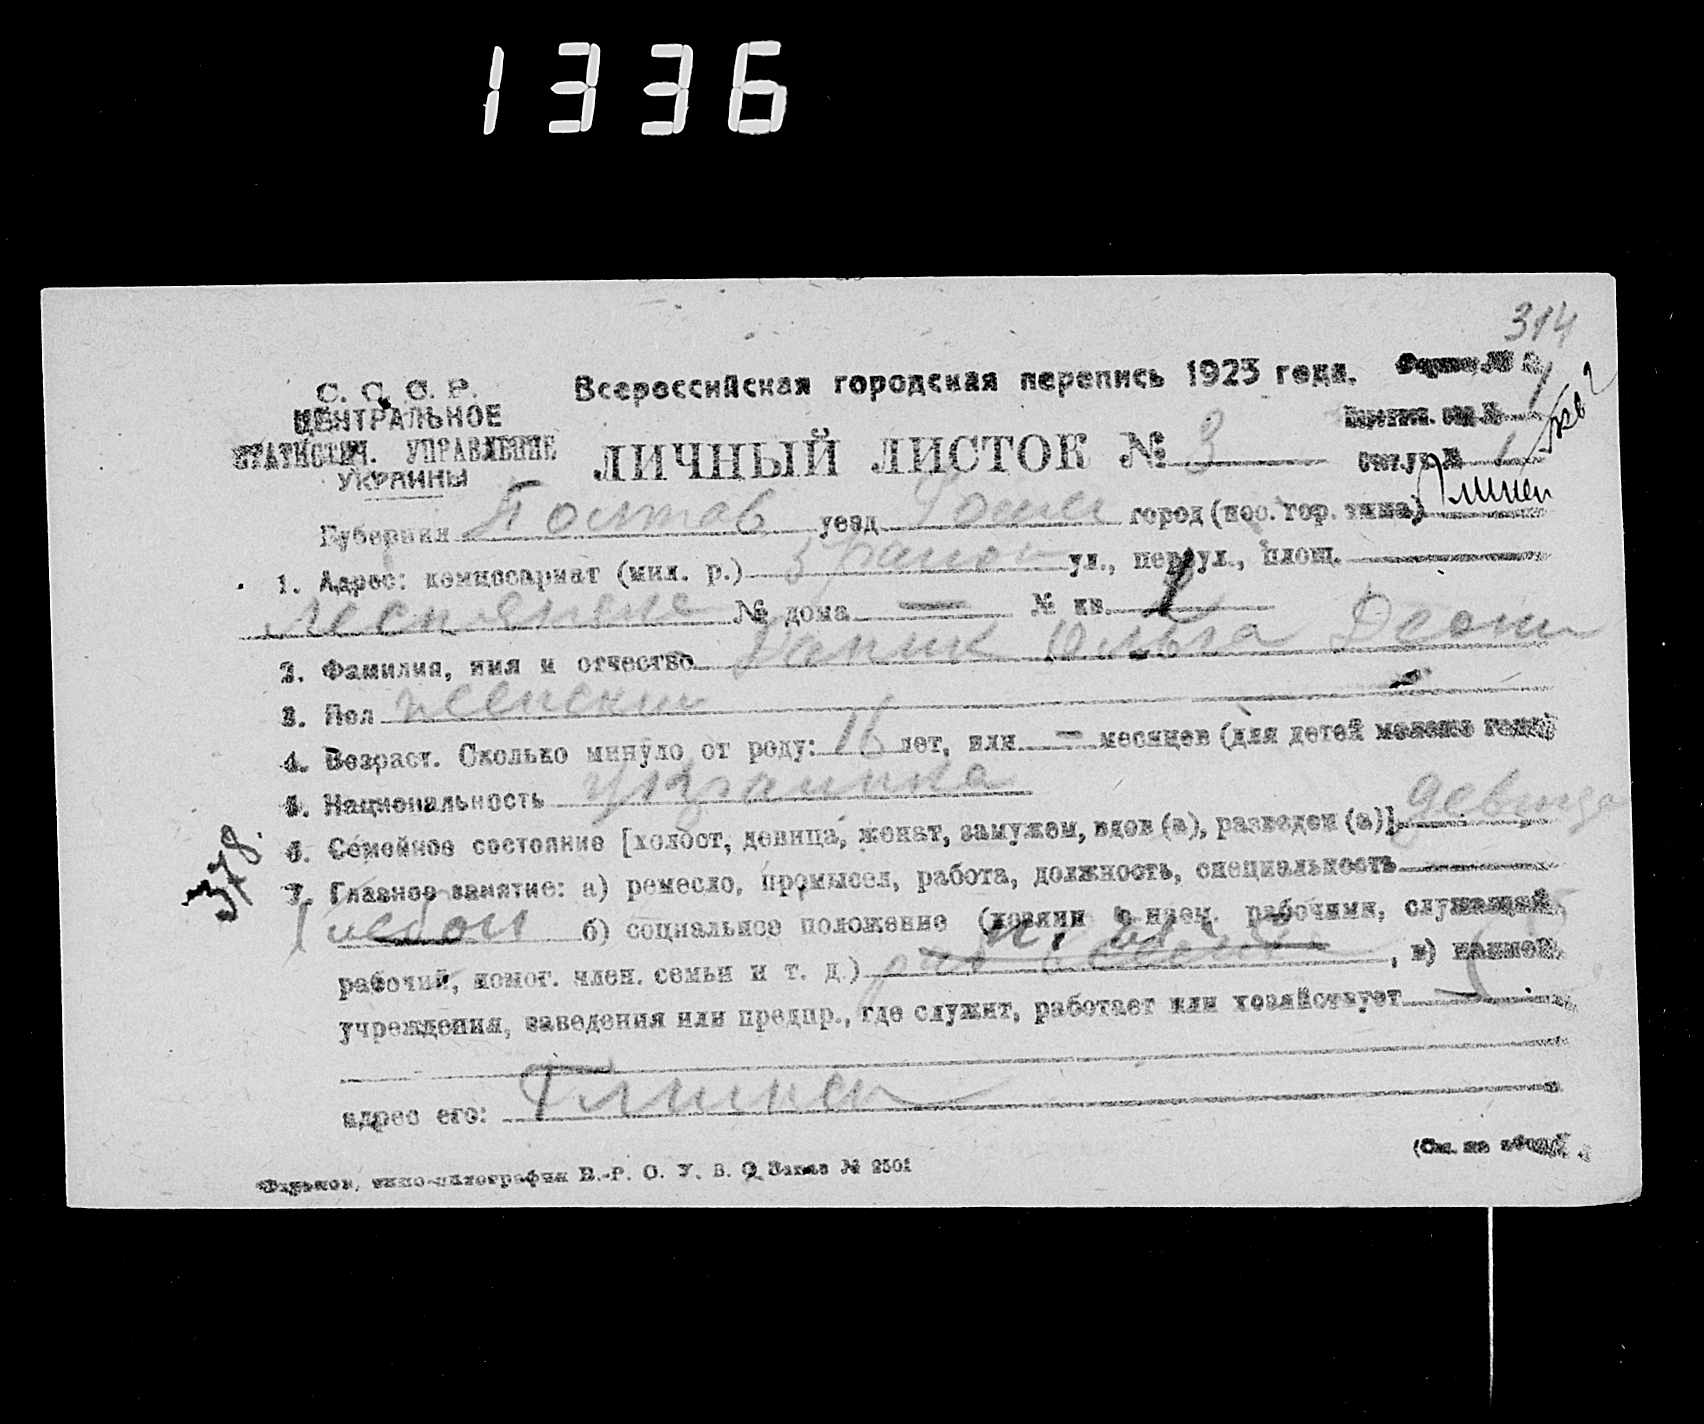 1336
314
С. С. С. Р.
ЦЕНТРАЛЬНОЕ
СТАТИСТИЧ. УПРАВЛЕНИЕ
УКРАИНЫ
Всероссийская городская перепись 1923 года.
Форма №
ЛИЧНЫЙ ЛИСТОК № 3
Счет. уч. № 1
Губерния Полтав уезд Ромен город (пос. гор. типа) Глинск
1. Адрес: комиссариат (мил. р.) 5 район ул., переул., площ.
№ дома — № кв.
2. Фамилия, имя и отчество Ольга
3. Пол женский
4. Возраст. Сколько минуло от роду: 16 лет, или — месяцев (для детей моложе года)
5. Национальность Украинка
6. Семейное состояние [холост, девица, женат, замужем, вдов (а), разведен (а)] девица
378.
7. Главное занятие: а) ремесло, промысел, работа, должность, специальность
хлебоп б) социальное положение (хозяин с наем. рабочими, служащий,
рабочий, помог. член. семьи и т. д.) , в) наимен.
учреждения, заведения или предпр., где служит, работает или хозяйствует
адрес его: Глинск
(См. на обор.)
Харьков, типо-литография В.-Р. О. У. В. О. Заказ № 2501